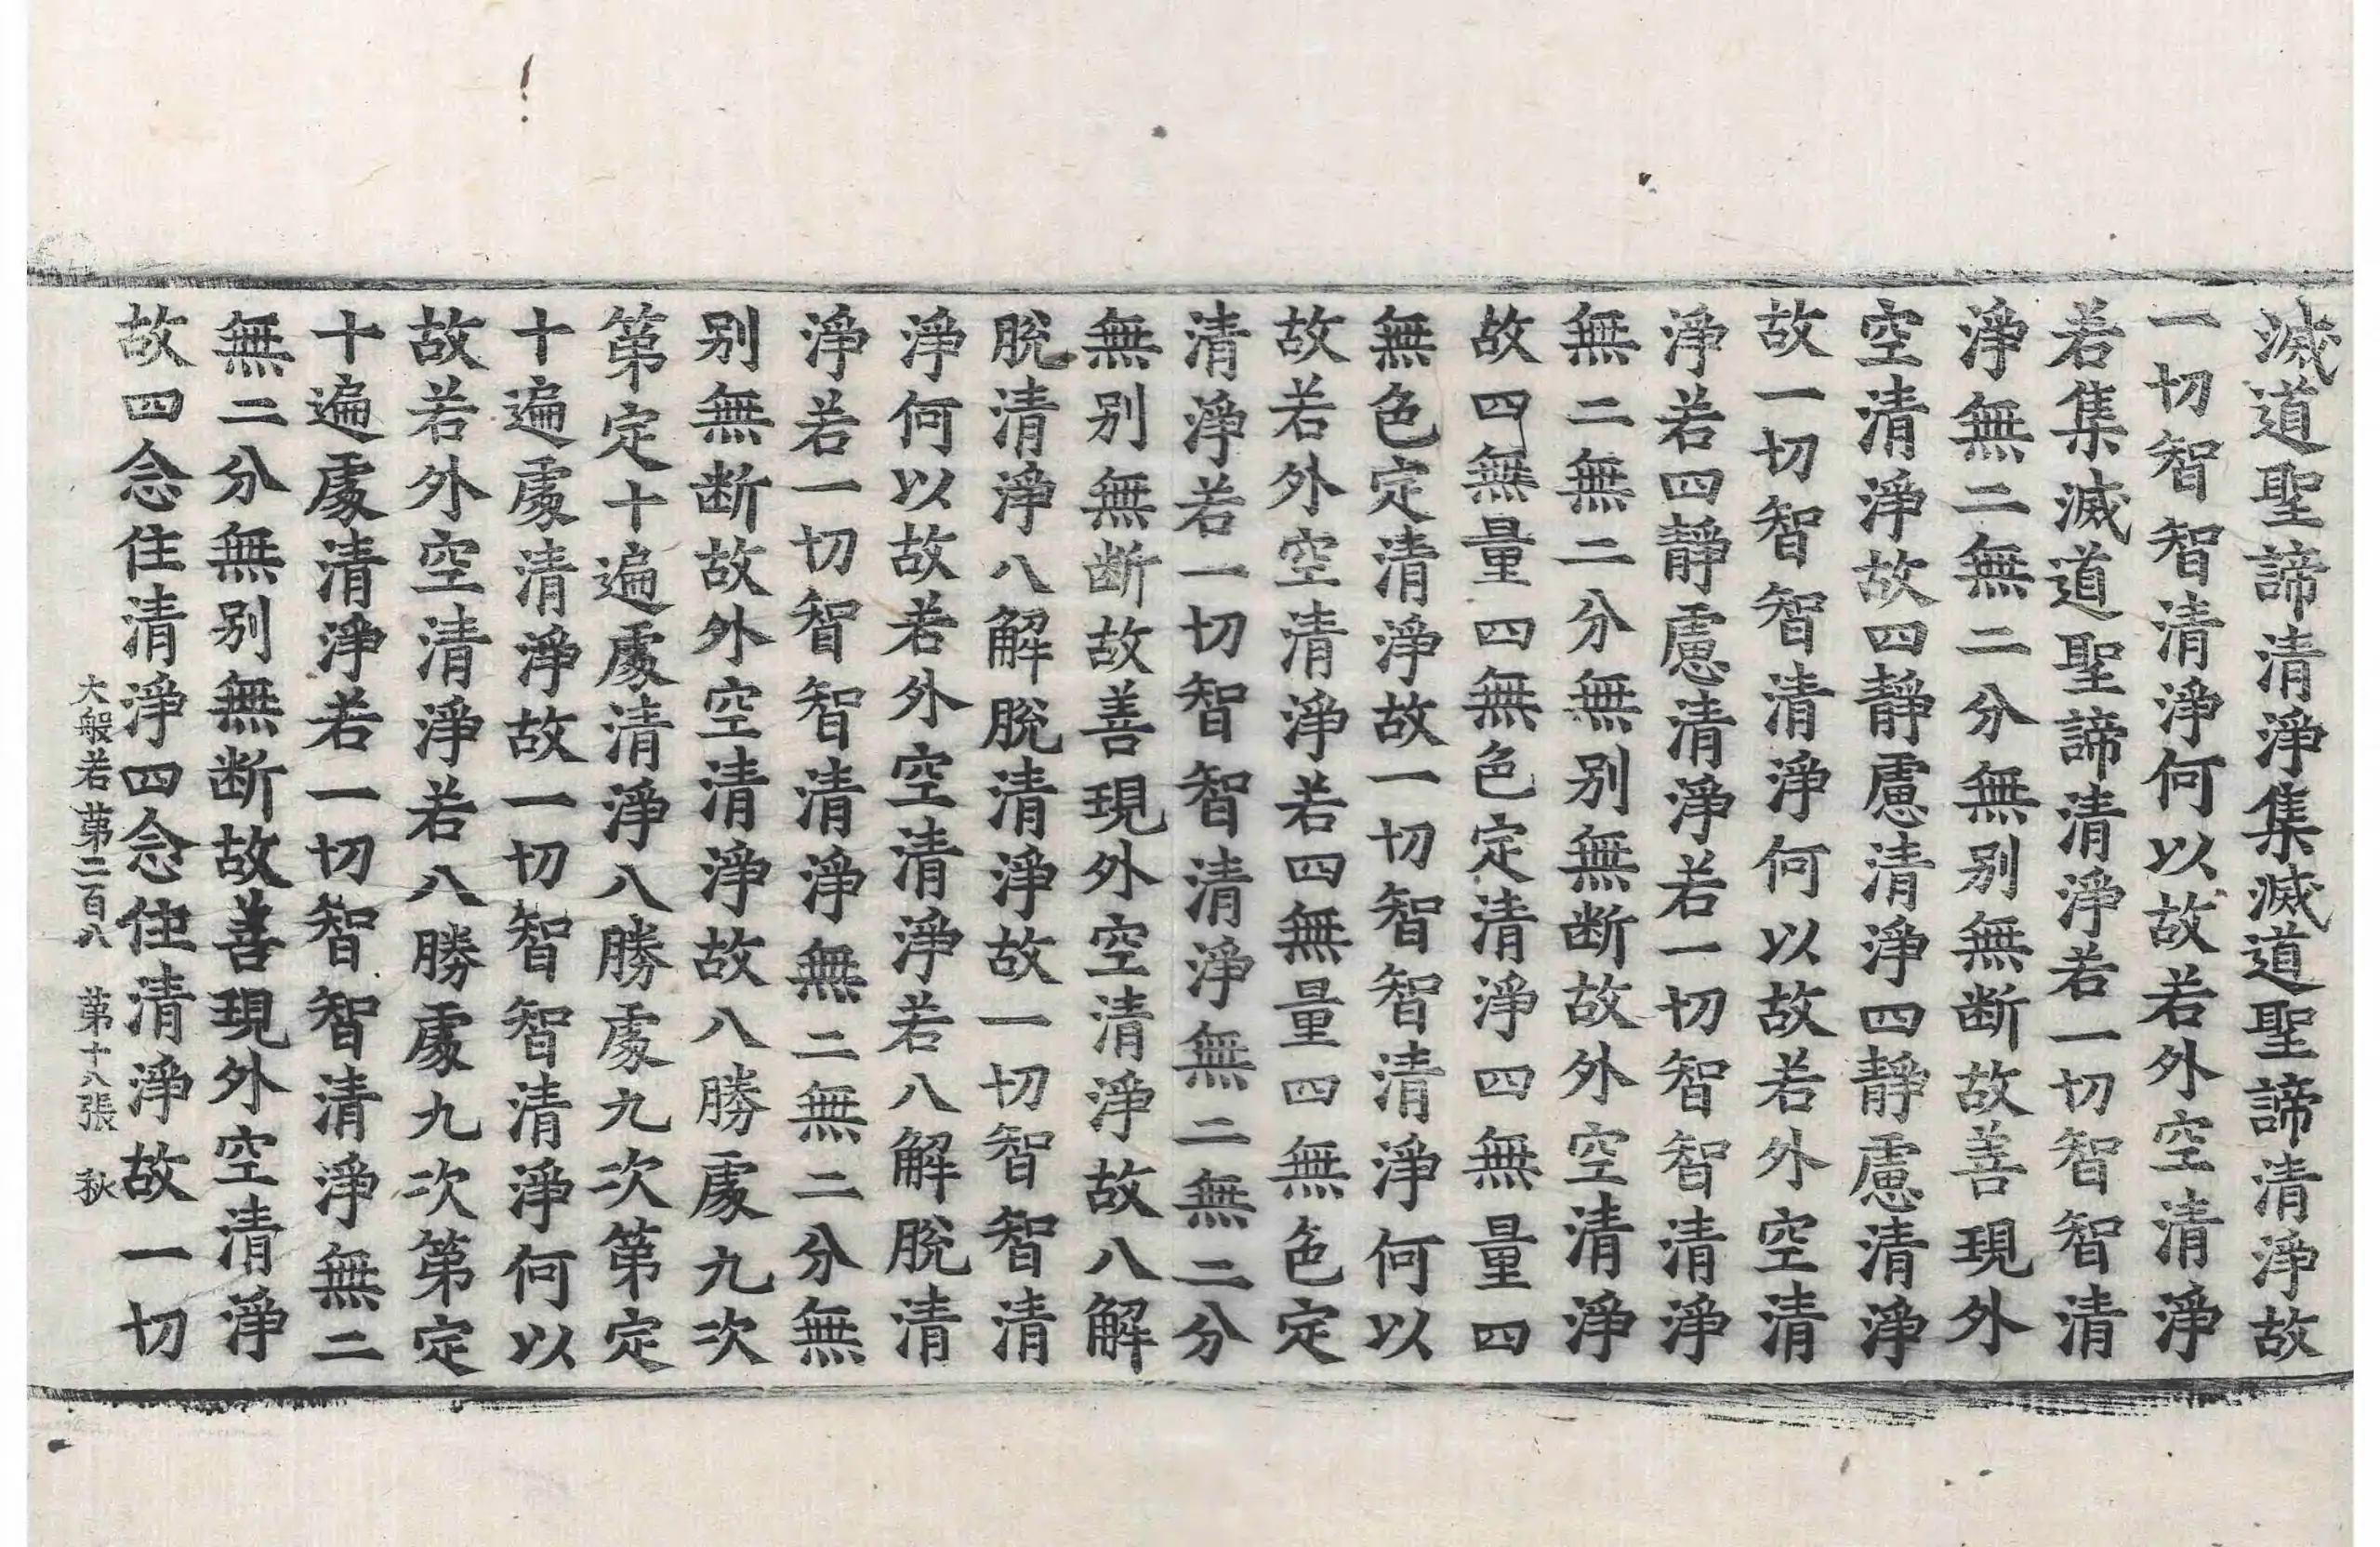 滅道聖諦清淨集滅道聖諦清淨故
一切智智清淨何以故若外空清淨
若集滅道聖諦清淨若一切智智清
淨無二無二分無別無斷故善現外
空清淨故四靜慮清淨四靜慮清淨
故一切智智清淨何以故若外空清
淨若四靜慮清淨若一切智智清淨
無二無二分無別無斷故外空清淨
故四無量四無色定清淨四無量四
無色定清淨故一切智智清淨何以
故若外空清淨若四無量四無色定
清淨若一切智智清淨無二無二分
無別無斷故善現外空清淨故八解
脫清淨八解脫清淨故一切智智清
淨何以故若外空清淨若八解脫清
淨若一切智智清淨無二無二分無
別無斷故外空清淨故八勝處九次
第定十遍處清淨八勝處九次第定
十遍處清淨故一切智智清淨何以
故若外空清淨若八勝處九次第定
十遍處清淨若一切智智清淨無二
無二分無別無斷故善現外空清淨
故四念住清淨四念住清淨故一切
大般若第二百八　第十八張　秋